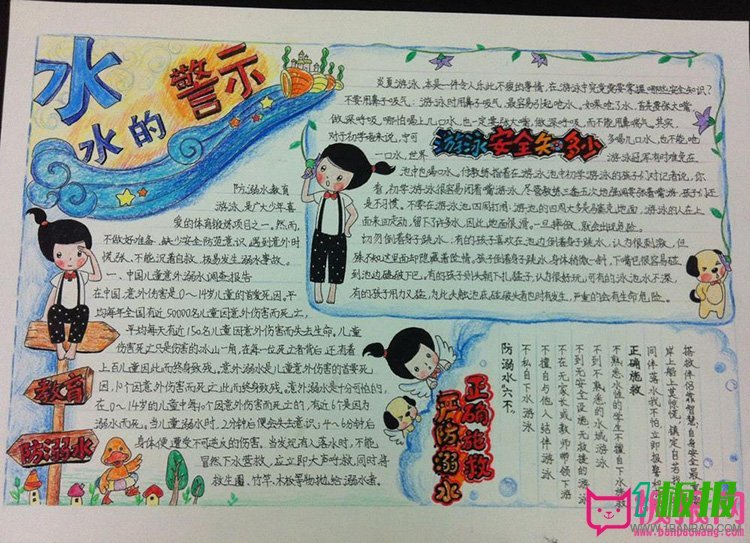 水
水的警示
防溺水教育
游泳,是广大少年喜
爱的体育锻炼项目之一。然而,
不做好准备、缺少安全防范意识,遇到意外时
慌张、不能沉着自救,极易发生溺水事故。
一、中国儿童意外溺水调查报告
在中国,意外伤害是0~14岁儿童的首要死因。平
均每年全国有近50000名儿童因意外伤害而死亡,
平均每天有近150名儿童因意外伤害而失去生命。儿童
伤害死亡只是伤害的冰山一角,在每一位死亡者背后,还有着
上百儿童因此而终身致残。意外溺水是儿童意外伤害的首要死
因,10个因意外伤害而死亡
在0~14岁的儿童中每10个因意外伤害而死亡的,有近6个是因为
溺水而死。当儿童溺水时,2分钟后便会失去意识;4~6分钟后
身体便遭受不可逆反的伤害。当发现有人落水时,不能
冒然下水营救,应立即大声呼救,同时将
救生圈、竹竿、木板等物抛给溺水者。
教育
防溺水
炎夏游泳,本是一件令人乐此不疲的事情,在游泳中究竟需要掌握哪些安全知识?
不要用鼻子吸气:游泳时用鼻子吸气,最容易引起呛水。如果呛了水,首先要张大嘴,
做深呼吸,哪怕喝上几口水,也一定要张大嘴,做深呼吸,而不能用鼻喷气。其实,
对于初学者来说,宁可
多喝几口水,也不能呛
一口水,世界
游泳冠军有时难免在
游泳安全知多少
池中也喝口水。
的孩子们对记者说,你
看,初学游泳很容易闭着嘴游泳,尽管教练三番五次地强调要张着嘴游,孩子们还
是不习惯。不要在游泳池四周打闹:游泳池的四周大多是马赛克地面,游泳的人在上
面来回走动,留下了许多水,因此,地面很滑,一旦摔伤,就会出现危险。
切勿倒着身子跳水。有的孩子喜欢在池边倒着身子跳水,认为很刺激,但
殊不知这里面却隐藏着险情。孩子倒着身子跳水,身体稍微一斜,下嘴巴很容易磕
到池边,磕破下巴。有的孩子则头朝下扎猛子,认为很好玩,可有的泳池水不深,
有的孩子用力又猛,为此头触池底,磕破头者也时有发生,严重的会有生命危险。
正确施救
严防溺水
防溺水六不
不私自下水游泳
不擅自与他人结伴游泳
不在无家长或教师带领下游泳
不到无安全设施、无救援的游泳
不到不熟悉的水域游泳
不熟悉水性的学生不擅自下水施救
正确施救
同伴落水我不怕,立即报警
岸上船上莫惊慌,镇定自若
搭救伴侣靠智慧,自身安全最
1板报
WWW.1BANBAO.COM
www.banbaowang.com